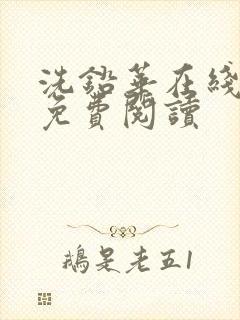 洗鉛華在綫
免費閱讀
鵝是老五1